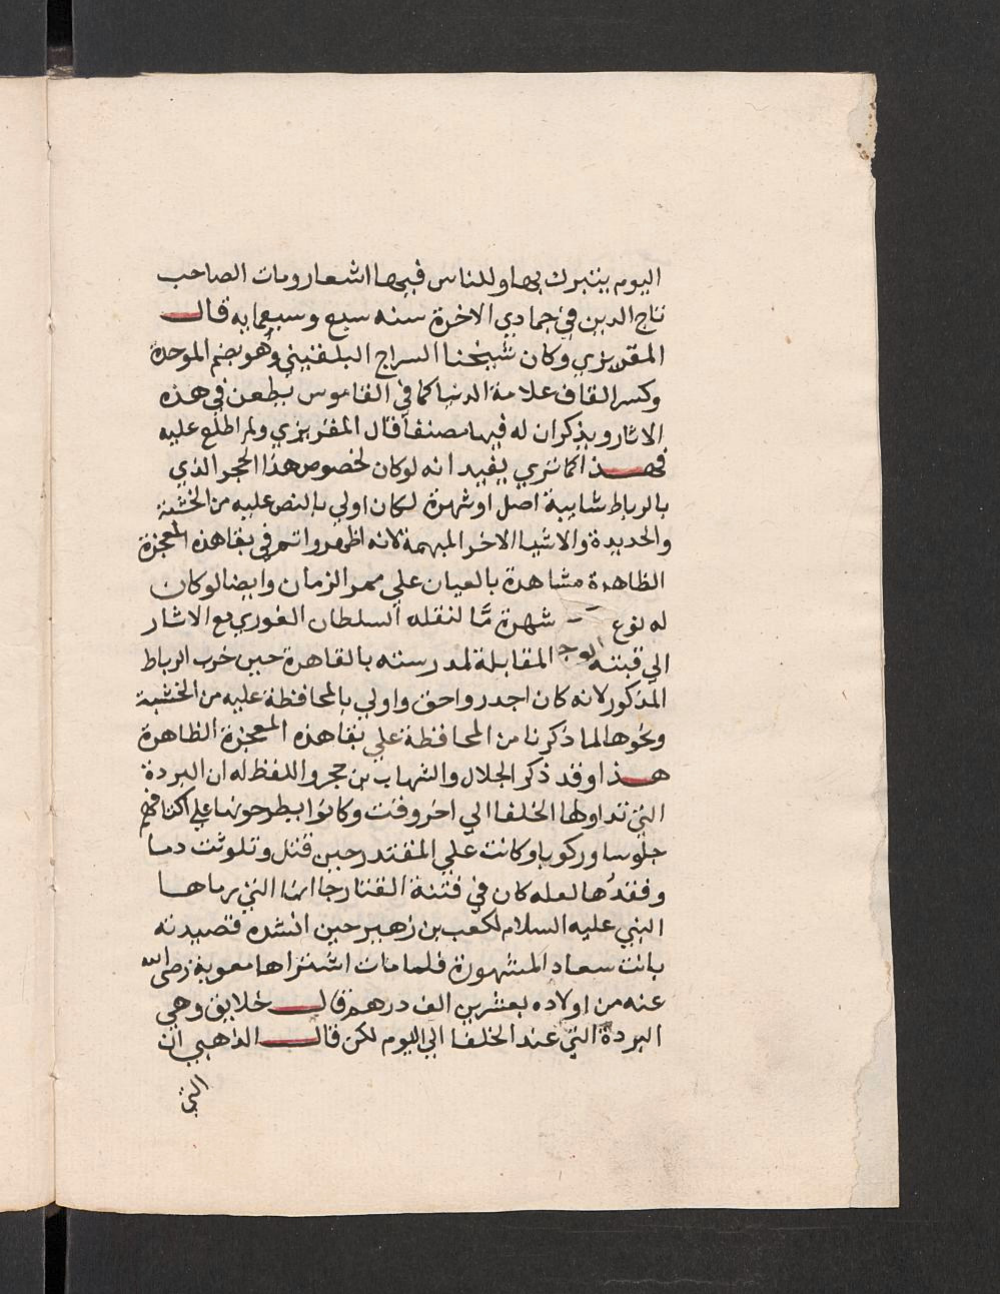 اليوم يتبرك بها وللناس فيها اشعار ومات الصاحب
تاج الدين في جمادي الاخرة سنه سبع وسبعمايه قال
المقريزي وكان شيخنا السراج البلقيني وهو بضم الموحدة
وكسر القاف علامة الدنيا كما في القاموس يطعن في هذه
الاثار ويذكر ان له فيها مصنفا قال المقريزي ولم اطلع عليه
فهذا كما تري يفيد انه لو كان لخصوص هذا الحجر الذي
بالرباط شايبة اصل او شهرة لكان اولي بالنص عليه من الخشبة
والحديدة والاشيا الاخر المبهمة لانه اظهر واتم في بقا هذه المعجزة
الظاهرة مشاهدة بالعيان علي ممر الزمان وايضا لو كان
له نوع شهرة مَّا لنقله السلطان الغوري مع الاثار
الي قبته المقابلة لمدرسته بالقاهرة حين خرب الرباط
المذكور لانه كان اجدر واحق واولي بالمحافظة عليه من الخشبة
ونحوها لما ذكرنا من المحافظة علي بقا هذه المعجزة الظاهرة
هذا وقد ذكر الجلال والشهاب بن حجر واللفظ له ان البردة
التي تداولها الخلفا الي اخر وقت وكانوا يطرحونها علي اكتافهم
جلوسا وركوبا وكانت علي المقتدر حين قتل وتلوثت دما
وفقدُها لعله كان في فتنة التتار جا انها التي رماها
النبي عليه السلام لكعب بن زهير حين انشده قصيدته
بانت سعاد المشهورة فلما مات اشتراها معوية رضي الله
عنه من اولاده بعشرين الف درهم قال خلايق وهي
البردة التي عند الخلفا الي اليوم لكن قال الذهبي ان
التي